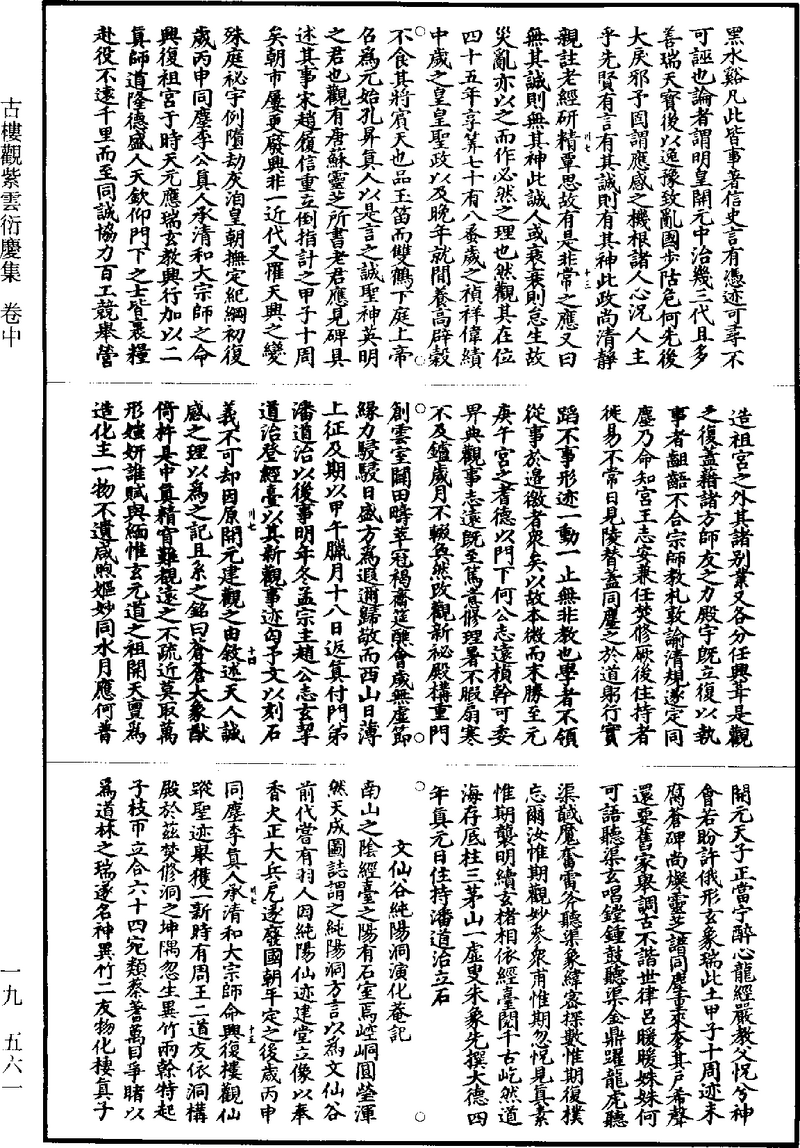 古樓觀紫雲衍慶集　卷中
一九　五六一
黑水谿凡此皆事著信史言有憑迹可尋不
可誣也論者謂明皇開元中治幾三代且多
善瑞天寶後以逸豫致亂國步阽危何先後
大戾邪予固謂應感之機根諸人心況人主
乎先賢有言有其誠則有其神此政尚清靜
親註老經研精覃思故有是非常之應又曰
無其誠則無其神此誠人或衰衰則怠生故
災亂亦以之而作必然之理也然觀其在位
四十五年享筭七十有八蚤歲之禎祥偉績
中歲之皇皇聖政以及晚年就閒養高辟穀
不食其將賓天也品玉笛而雙鶴下庭上帝
名為元始孔昇真人以是言之誠聖神英明
之君也觀有唐蘇靈芝所書老君應見碑具
述其事宋趙履信重立倒指計之甲子十周
矣朝市屢更廢興非一近代又罹天興之變
殊庭祕宇例墮劫灰洎皇朝撫定紀綱初復
歲丙申同塵李公真人承清和大宗師之命
興復祖宮于時天元應瑞玄教興行加以二
真師道隆德盛人天欽仰門下之士皆裹糧
赴役不遠千里而至同誠協力百工競舉營
造祖宮之外其諸別業又各分任興葺是觀
之復蓋藉諸方師友之力殿宇既立復以執
事者齟齬不合宗師教札敦諭清規遂定同
塵乃命知宮王志安兼任焚修厥後住持者
徙易不常日見陵替蓋同塵之於道躬行實
蹈不事形迹一動一止無非教也學者不領
從事於邊徼者眾矣以故本微而末勝至元
庚午宮之耆德以門下何公志遠楨幹可委
畀典觀事志遠既至篤意修理暑不暇扇寒
不及鑪歲月不輟奐然改觀新祕殿構重門
創雲室闢田疇萃冠褐齋筵醮會歲無虛節
緣力駸駸日盛方為遐邇歸敬而西山日薄
上征及期以甲午臘月十八日返真付門弟
潘道治以後事明年冬孟宗主趙公志玄挈
道治登經臺以其新觀事迹匄予文以刻石
義不可却因原開元建觀之由敘述天人誠
感之理以為之記且系之銘曰蒼蒼大象猷
倚杵具中真精官難覩遠之不疏近莫取萬
形媸妍誰賦與緬惟玄元道之祖開天賈為
造化主一物不遺咸煦嫗妙同水月應何普
開元天子正當宁醉心龍經嚴教父怳兮神
會若盼許俄形玄象瑞此土甲子十周迹未
腐蒼碑尚爍靈芝譜同塵重來麥其戶希聲
還亟舊家舉調古不諧世律呂暖暖姝姝何
可語聽渠玄唱鏜鍾鼓聽渠金鼎躍龍虎聽
渠馘魔奮雷斧聽渠象緯窮探數惟期復樸
忘爾汝惟期觀妙參眾甫惟期忽怳見真素
惟期襲明續玄楮相依經臺閱千古屹然道
海存厎柱三茅山一虛叟朱象先撰大德四
年真元日住持潘道治立石
文仙谷純陽洞演化菴記
南山之陰經臺之陽有石室焉崆峒圓瑩渾
然天成圖誌謂之純陽洞方言以為文仙谷
前代嘗有羽人因純陽仙迹建堂立像以奉
香火正大兵戹遂廢國朝平定之後歲丙申
同塵李真人承清和大宗師命興復樓觀仙
蹤聖迹舉獲一新時有周王二道友依洞構
殿於茲焚修洞之坤隅忽生異竹兩幹特起
子枝帀立合六十四宛類蓍蓍萬目爭睹以
為道林之瑞遂名神異竹二友物化棲真子